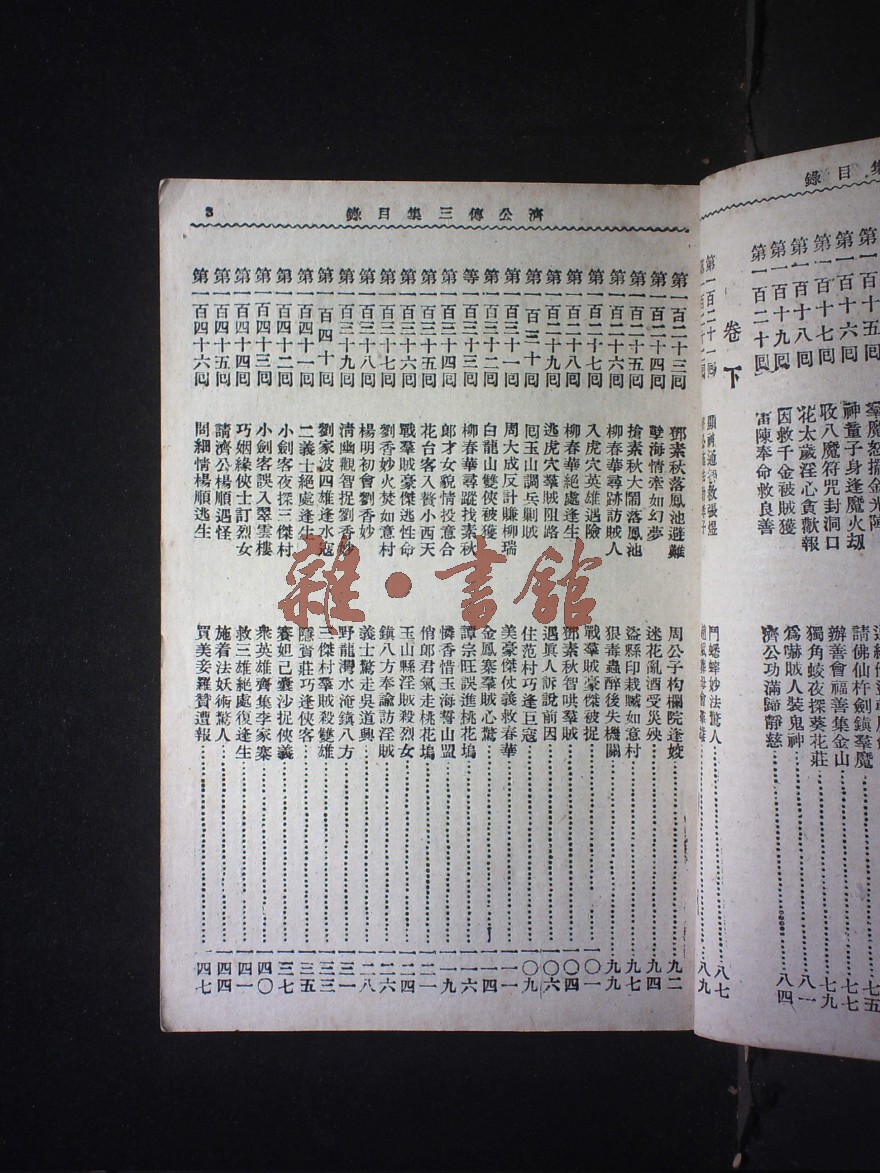 集目錄
第一百十六回　神童子身逢魔火劫
第一百十七回　收八魔符咒封洞口　辦善會福善集金山……七七
第一百十八回　花太歲淫心貪歡報　獨角蛟夜探葵花莊……七九
第一百十九回　因救千金被賊獲　爲嚇賊人裝鬼神……八一
第一百二十回　雷陳奉命救良善　濟公功滿歸靜慈……八四
卷下
第一百二十一回　顯神通學救張煜　鬥蟋蟀妙法驚人……八七
濟公傳三集目錄　3
第一百二十三回　鄧素秋落鳳池避難　周公子构欄院逢姣……九二
第一百二十四回　孽海情牽如幻夢　迷花亂酒受災殃……九四
第一百二十五回　搶素秋大鬧落鳳池　盜縣印栽贓如意村……九七
第一百二十六回　柳春華尋跡訪賊人　狠毒蟲醉後失機關……九九
第一百二十七回　入虎穴英雄遇險　戰羣賊豪傑被捉……一〇一
第一百二十八回　柳春華絕處逢生　鄧素秋智哄羣賊……一〇四
第一百二十九回　逃虎穴羣賊阻路　遇眞人訴說前因……一〇六
第一百三十回　囘玉山調兵剿賊　住范村巧逢巨寇……一〇九
第一百三十一回　周大成反計賺柳瑞　美豪傑仗義救春華……一一一
第一百三十二回　白龍山雙俠被獲　金鳳寨羣賊心驚……一一四
等一百三十三回　柳春華尋蹤找素秋　譚宗旺誤進桃花塢……一一六
第一百三十四回　郎才女貌情投意合　憐香惜玉海誓山盟……一一九
第一百三十五回　花台客入贅小西天　俏郎君氣走桃花塢……一二一
第一百三十六回　戰羣賊豪傑逃性命　玉山縣淫賊殺烈女……一二四
第一百三十七回　劉香妙火焚如意村　鎮八方奉諭訪淫賊……一二六
第一百三十八回　楊明初會劉香妙　義士驚走吳道興……一二八
第一百三十九回　清幽觀智捉劉香妙　野龍灣水淹鎮八方……一三一
第一百四十回　劉家波四雄逢水寇　三傑村羣賊殺雙雄……一三三
第一百四十一回　二義士絕處逢生　隱賢莊巧逢俠客……一三五
第一百四十二回　小劍客夜探三傑村　賽妲己囊沙捉俠義……一三七
第一百四十三回　小劍客誤入翠雲樓　衆英雄齊集李家寨……一四〇
第一百四十四回　巧姻緣俠士訂烈女　救三雄絕處復逢生……一四一
第一百四十五回　請濟公楊順遇怪　施着法妖術驚人……一四四
第一百四十六回　問細情楊順逃生　買美妾羅贊遭報……一四七
雜·書館